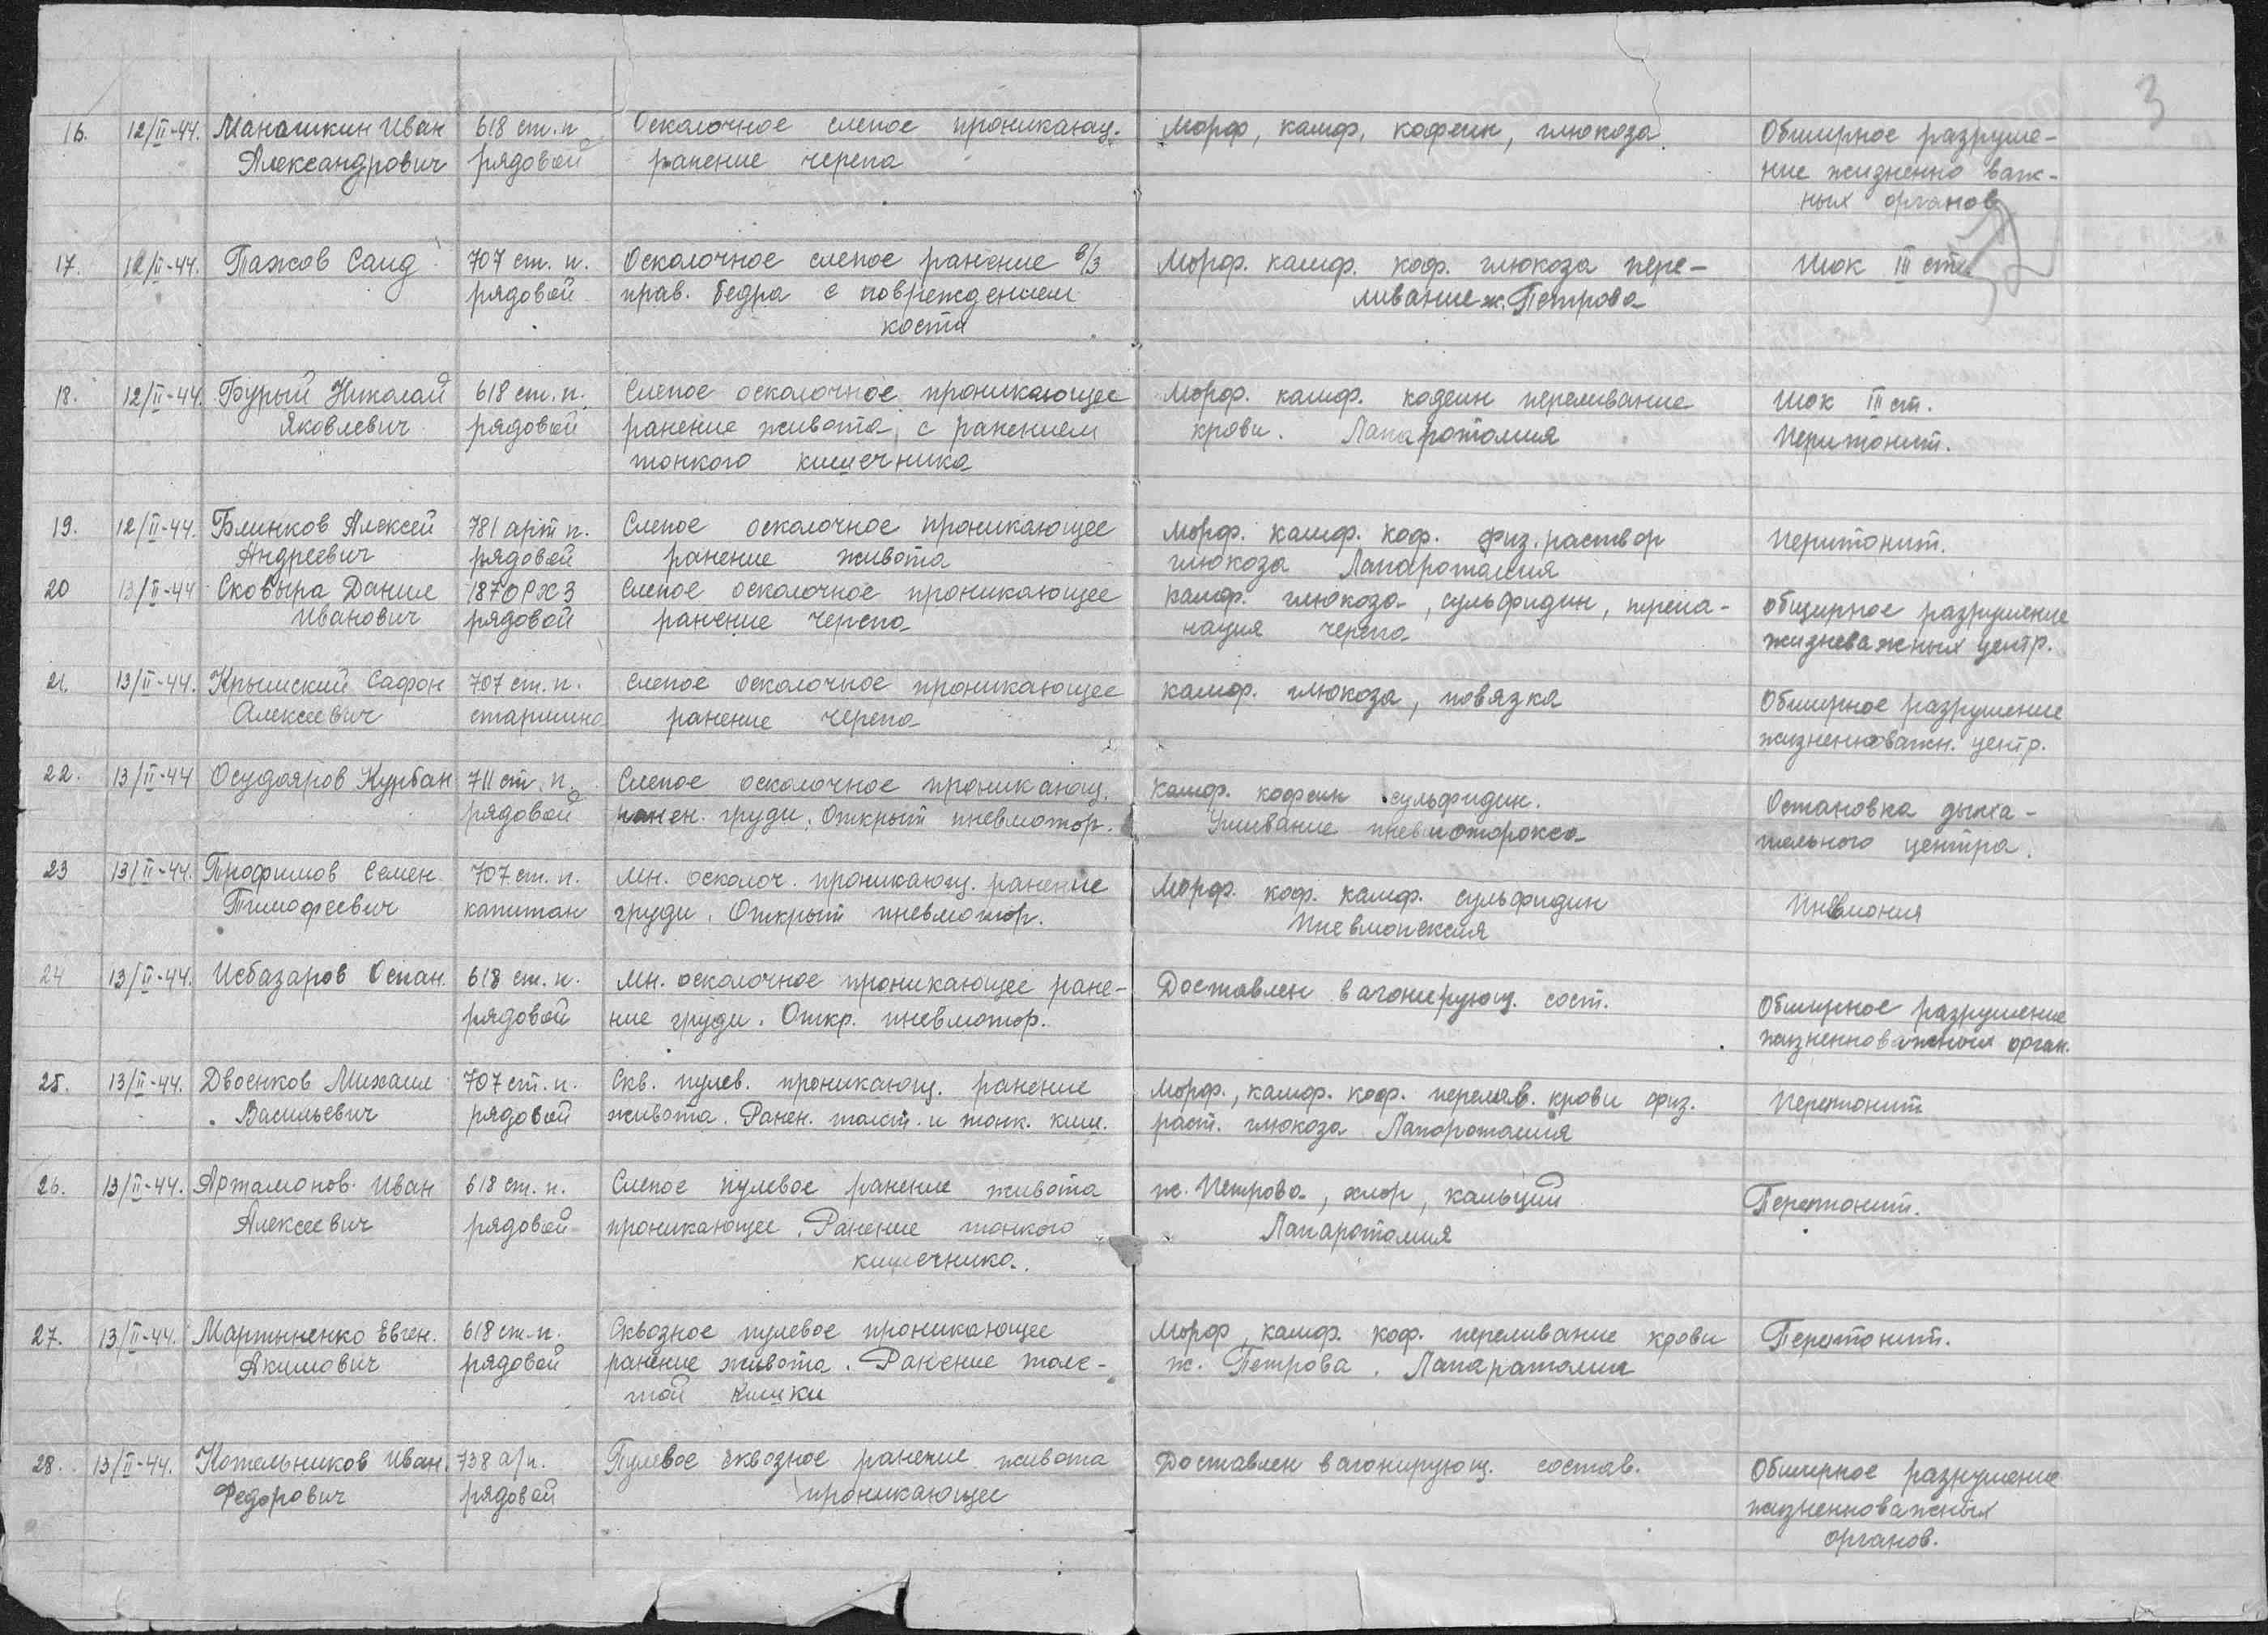 3
16. 12/II-44. Манашкин Иван 618 ст. п. Осколочное слепое проникающ. Морф, камф, кофеин, глюкоза. Обширное разруше-
Александрович рядовой ранение черепа ние жизненно важ-
ных органов
17. 12/II-44. Пажов Саид 707 ст. п. Осколочное слепое ранение в/3 Морф. камф. коф. глюкоза пере- Шок III ст.
рядовой прав. бедра с повреждением ливание ж. Петрова
кости
18. 12/II-44. Бурый Николай 618 ст. п. Слепое осколочное проникающее Морф. камф. кодеин переливание Шок III ст.
Яковлевич рядовой ранение живота, с ранением крови. Лапаротомия Перитонит.
тонкого кишечника
19. 12/II-44. Блинков Алексей 781 арт п. Слепое осколочное проникающее Морф. камф. коф. физ. раствор Перитонит.
Андреевич рядовой ранение живота глюкоза Лапаротомия
20 13/II-44 Сковыра Данил 187 ОРХЗ Слепое осколочное проникающее камф. глюкоза, сульфидин, трепа- Общирное разрушение
Иванович рядовой ранение черепа нация черепа жизневажных центр.
21. 13/II-44. Крымский Сафон 707 ст. п. Слепое осколочное проникающее камф. глюкоза, повязка Обширное разрушение
Алексеевич старшина ранение черепа жизненноважн. центр.
22. 13/II-44 Осудояров Курбан 711 ст. п. Слепое осколочное проникающ. Камф. кофеин сульфидин. Остановка дыха-
рядовой ранен. груди. Открыт пневмотор. Ушивание пневмоторокса тельного центра.
23 13/II-44. Трофимов Семен 707 ст. п. Мн. осколоч. проникающ. ранение Морф. коф. камф. сульфидин Пневмония
Тимофеевич капитан груди. Открыт пневмотор. Пневмопексия
24 13/II-44. Исбазаров Оспан. 618 ст. п. Мн. осколочное проникающее ране- Доставлен в агонирующ. сост. Обширное разрушение
рядовой ние груди. Откр. пневмотор. жизненноважных орган.
25. 13/II-44. Двоенков Михаил 707 ст. п. Скв. пулев. проникающ. ранение Морф., камф. коф. перелив. крови физ. Перетонит
Васильевич рядовой живота. Ранен. толст. и тонк. киш. раст. глюкоза Лапоротомия
26. 13/II-44. Артамонов Иван 618 ст. п. Слепое пулевое ранение живота ж. Петрова, хлор, кальций Перетонит.
Алексеевич рядовой проникающее. Ранение тонкого Лапаротомия
кишечника.
27. 13/II-44. Мартыненко Евген. 618 ст. п. Сквозное пулевое проникающее Морф, камф. коф. переливание крови Перетонит.
Акимович рядовой ранение живота. Ранение толс- ж. Петрова. Лапаратомия
той кишки
28. 13/II-44. Котельников Иван. 738 а/п. Пулевое сквозное ранение живота Доставлен в агонирующ. состав. Обширное разрушение
Федорович рядовой проникающее жизненноважных
органов.